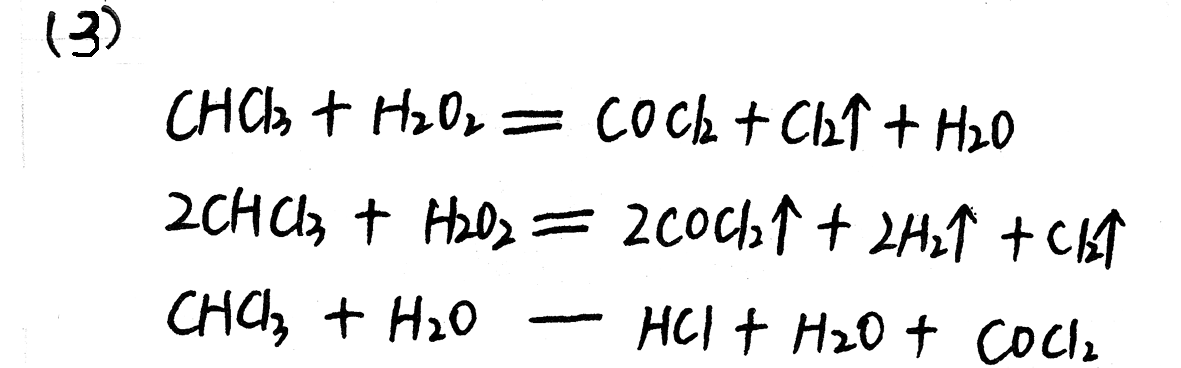 (3)
CHCl₃ + H₂O₂ = COCl₂ + Cl₂↑ + H₂O
2CHCl₃ + H₂O₂ = 2COCl₂↑ + 2H₂↑ + Cl₂↑
CHCl₃ + H₂O — HCl + H₂O + COCl₂